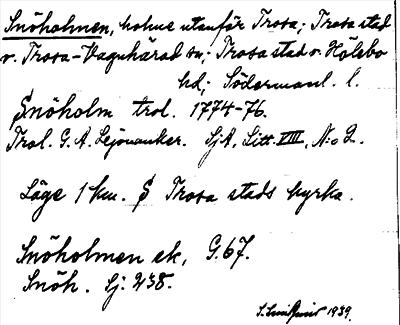 Snöholmen, holme utanför Trosa; Trosa stad
o. Trosa-Vagnhärad sn; Trosa stad o. Hölebo
hd; Södermanl. l.
Snöholm trol. 1774-76.
Trol. G. A. Lejonanker. SjA, Litt VIII, N:o 2.
Läge 1 km. S Trosa stads kyrka.
Snöholmen ek, G.67.
Snöh. Sj: 238.
1939